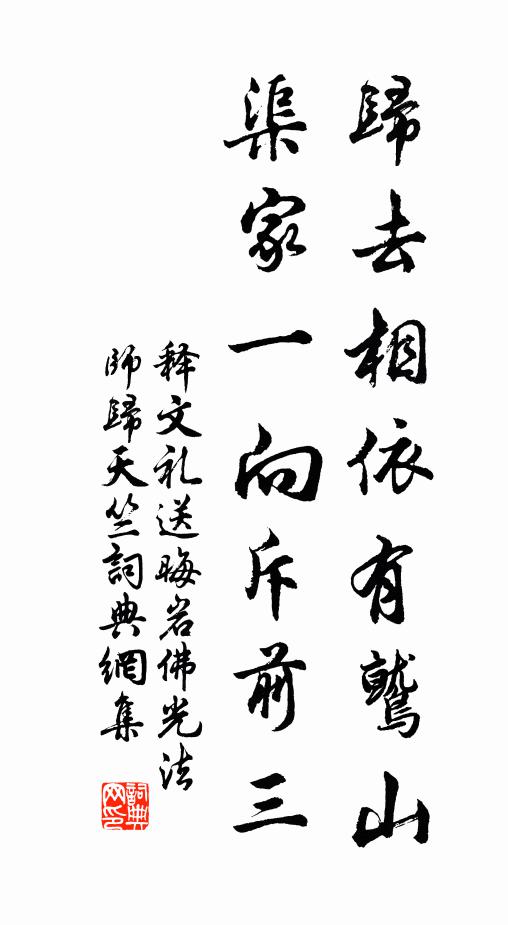 歸去相依有鷲山
渠家一向斥前三
释文礼送晦岩佛光法
師歸天竺詞典網集
詞典网印